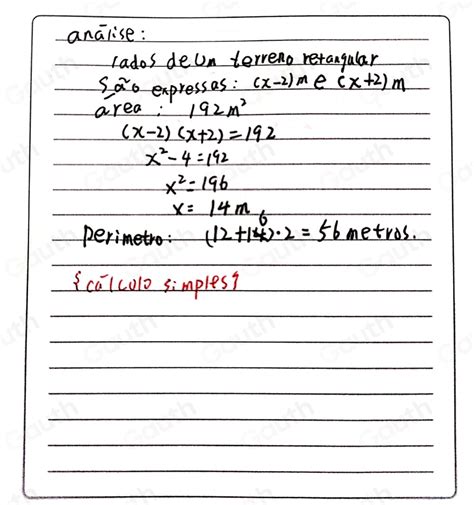 análise:
lados de um terreno retangular
são expressas: (x-2)m e (x+2)m
área: 192m²
(x-2)(x+2)=192
x²-4=192
x²=196
x=14m
perimetro: (12+16)·2=56 metros.
{cálculo simples}